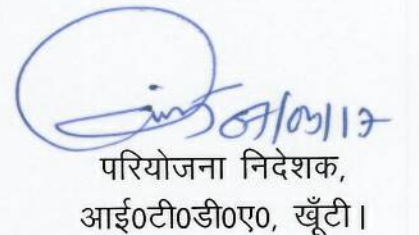 07/03/17
परियोजना निदेशक,
आई0टी0डी0ए0, खूँटी।